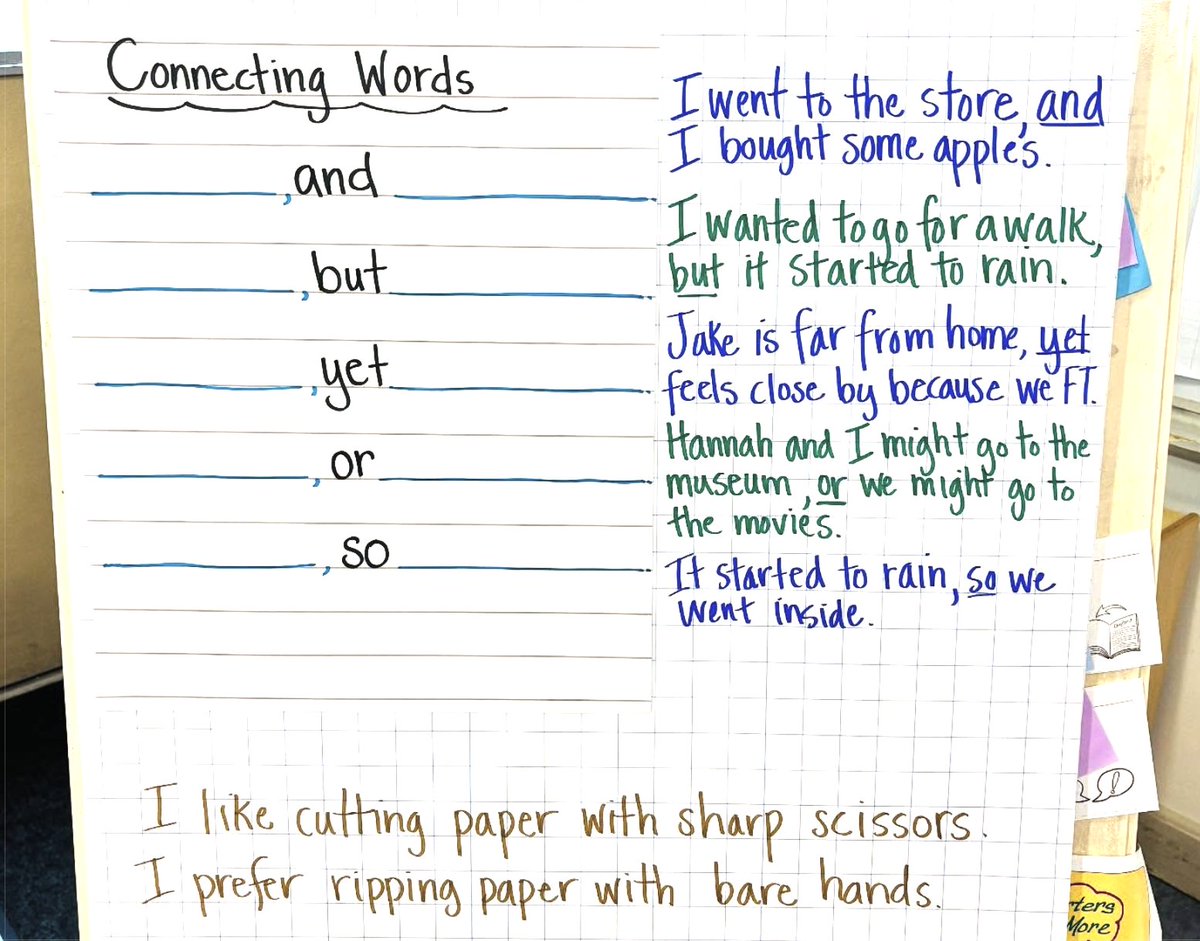 Connecting Words
, and
, but
, yet
, or
, so
I went to the store, and
I bought some apples.
I wanted to go for a walk,
but it started to rain.
Jake is far from home, yet
feels close by because we FT.
Hannah and I might go to the
museum, or we might go to
the movies.
It started to rain, so we
went inside.
I like cutting paper with sharp scissors.
I prefer ripping paper with bare hands.
ters
More